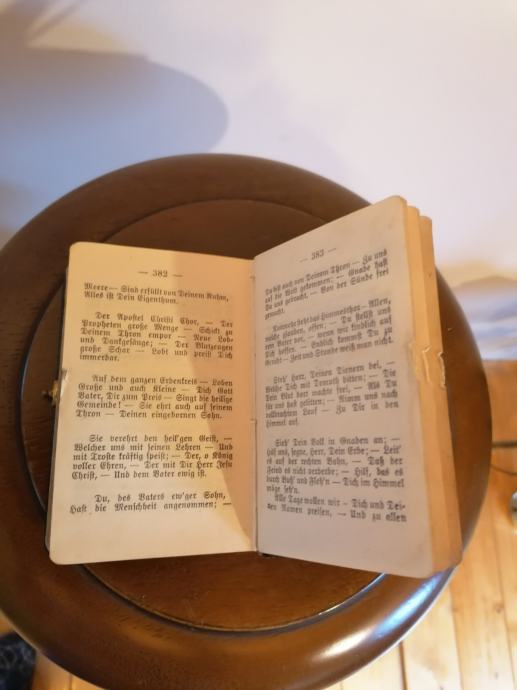 — 382 —
Meere — Sind erfüllt von Deinem Ruhm,
Alles ist Dein Eigenthum.
Der Apostel Christi Chor, — Der
Propheten große Menge — Schickt zu
Deinem Thron empor — Neue Lob-
und Dankgesänge; — Der Blutzeugen
große Schar — Lobt und preist Dich
immerdar.
Auf dem ganzen Erdenkreis — Loben
Große und auch Kleine — Dich Gott
Vater, Dir zum Preis — Singt die heilige
Gemeinde! — Sie ehrt auch auf seinem
Thron — Deinen eingebornen Sohn.
Sie verehrt den heil'gen Geist, —
Welcher uns mit seinen Lehren — Und
mit Troste kräftig speist; — Der, o König
voller Ehren, — Der mit Dir Herr Jesu
Christ, — Und dem Vater ewig ist.
Du, des Vaters ew'ger Sohn,
Hast die Menschheit angenommen; —
— 383 —
Du bist auch von Deinem Thron — Zu uns
auf die Welt gekommen; — Gnade hast
Du uns gebracht, — Von der Sünde frei
gemacht.
Nunmehr steht das Himmelsthor — Allen,
welche glauben, offen; — Du stellst uns
dem Vater vor, — wenn wir kindlich auf
Dich hoffen. — Endlich kommst Du zu
Gericht — Zeit und Stunde weiß man nicht.
Steh' Herr, Deinen Dienern bei, —
Welche Dich mit Demuth bitten; — Die
Dein Blut dort machte frei, — Als Du
für uns hast gelitten; — Nimm uns nach
vollbrachtem Lauf — Zu Dir in den
Himmel auf.
Sieh' Dein Volk in Gnaden an; —
Hilf uns, segne, Herr, Dein Erbe; — Leit'
es auf der rechten Bahn, — Daß der
Feind es nicht verderbe; — Hilf, daß es
durch Buß' und Fleh'n — Dich im Himmel
möge seh'n.
Alle Tage wollen wir — Dich und Dei-
nen Namen preisen, — Und zu allen